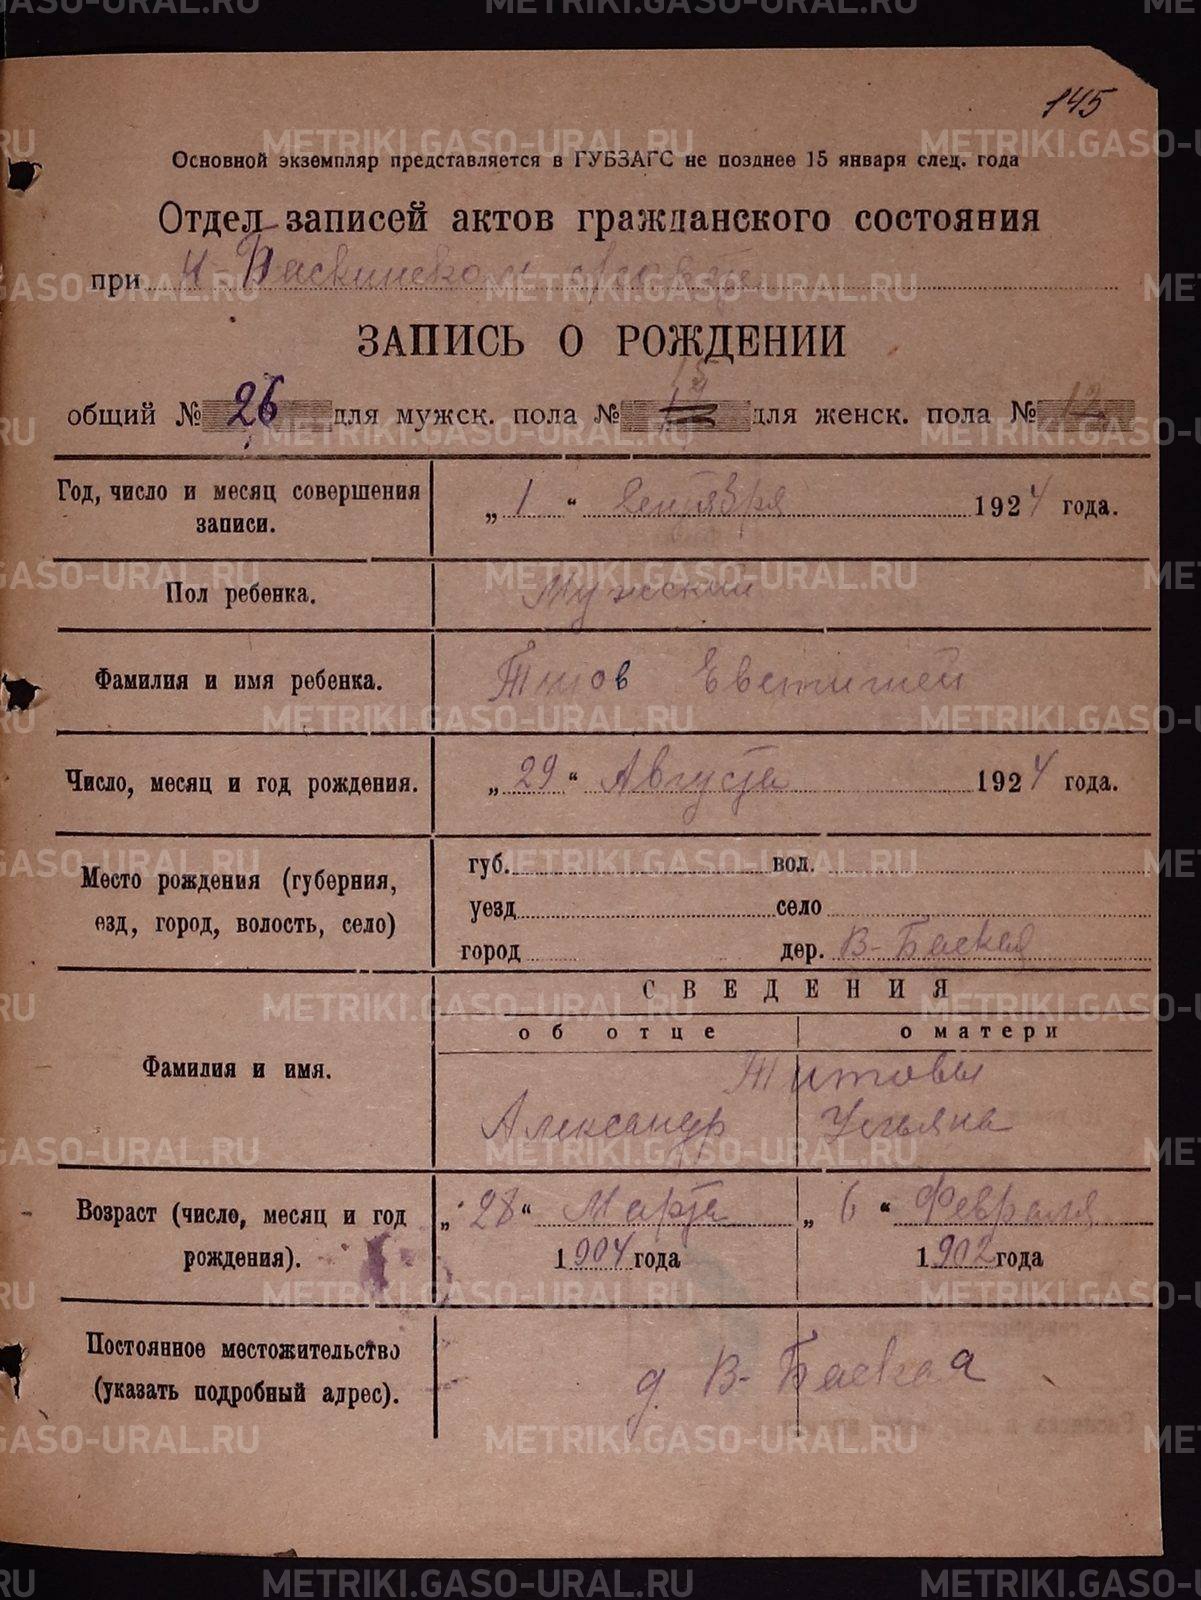 145
Основной экземпляр представляется в ГУБЗАГС не позднее 15 января след. года
Отдел записей актов гражданского состояния
при Н-Баскинском
ЗАПИСЬ О РОЖДЕНИИ
общий № 26 для мужск. пола № для женск. пола № 12
Год, число и месяц совершения записи.
„ 1 “ Сентября 1924 года.
Пол ребенка.
Мужской
Фамилия и имя ребенка.
Титов Евстигней
Число, месяц и год рождения.
„ 29 “ Августа 1924 года.
Место рождения (губерния,
езд, город, волость, село)
губ. вол.
уезд село
город дер. В-Баская
СВЕДЕНИЯ
об отце о матери
Фамилия и имя.
Титовы
Александр Ульяна
Возраст (число, месяц и год
рождения).
„ 28 “ Марта „ 6 “ Февраля
1904 года 1902 года
Постоянное местожительство
(указать подробный адрес).
д. В-Баская
METRIKI.GASO-URAL.RU